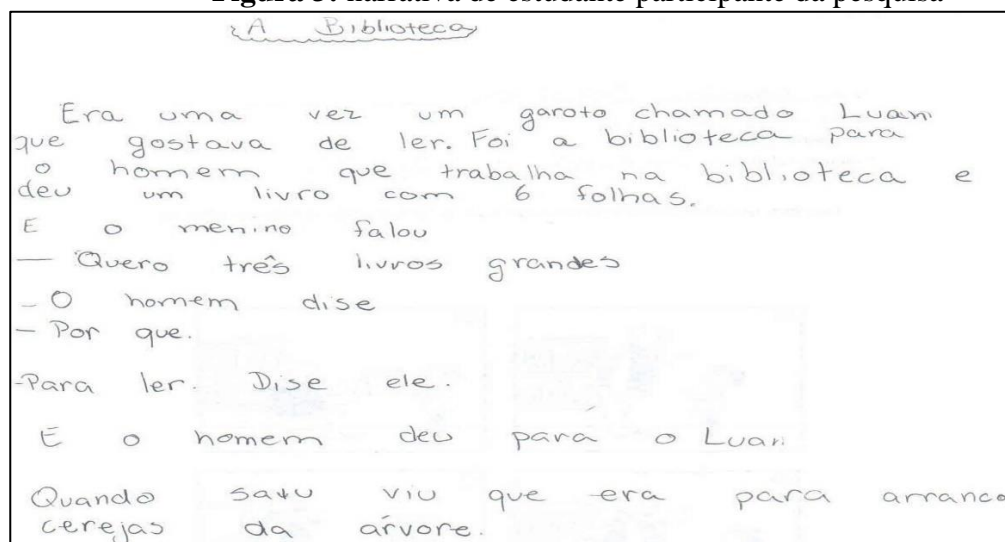 Figura 3: narrativa de estudante participante da pesquisa
A Biblioteca
Era uma vez um garoto chamado Luan
que gostava de ler. Foi a biblioteca para
o homem que trabalha na biblioteca e
deu um livro com 6 folhas.
E o menino falou
— Quero três livros grandes
- O homem dise
- Por que.
-Para ler. Dise ele.
E o homem deu para o Luan
Quando viu que era para arranco
cerejas da arvore.